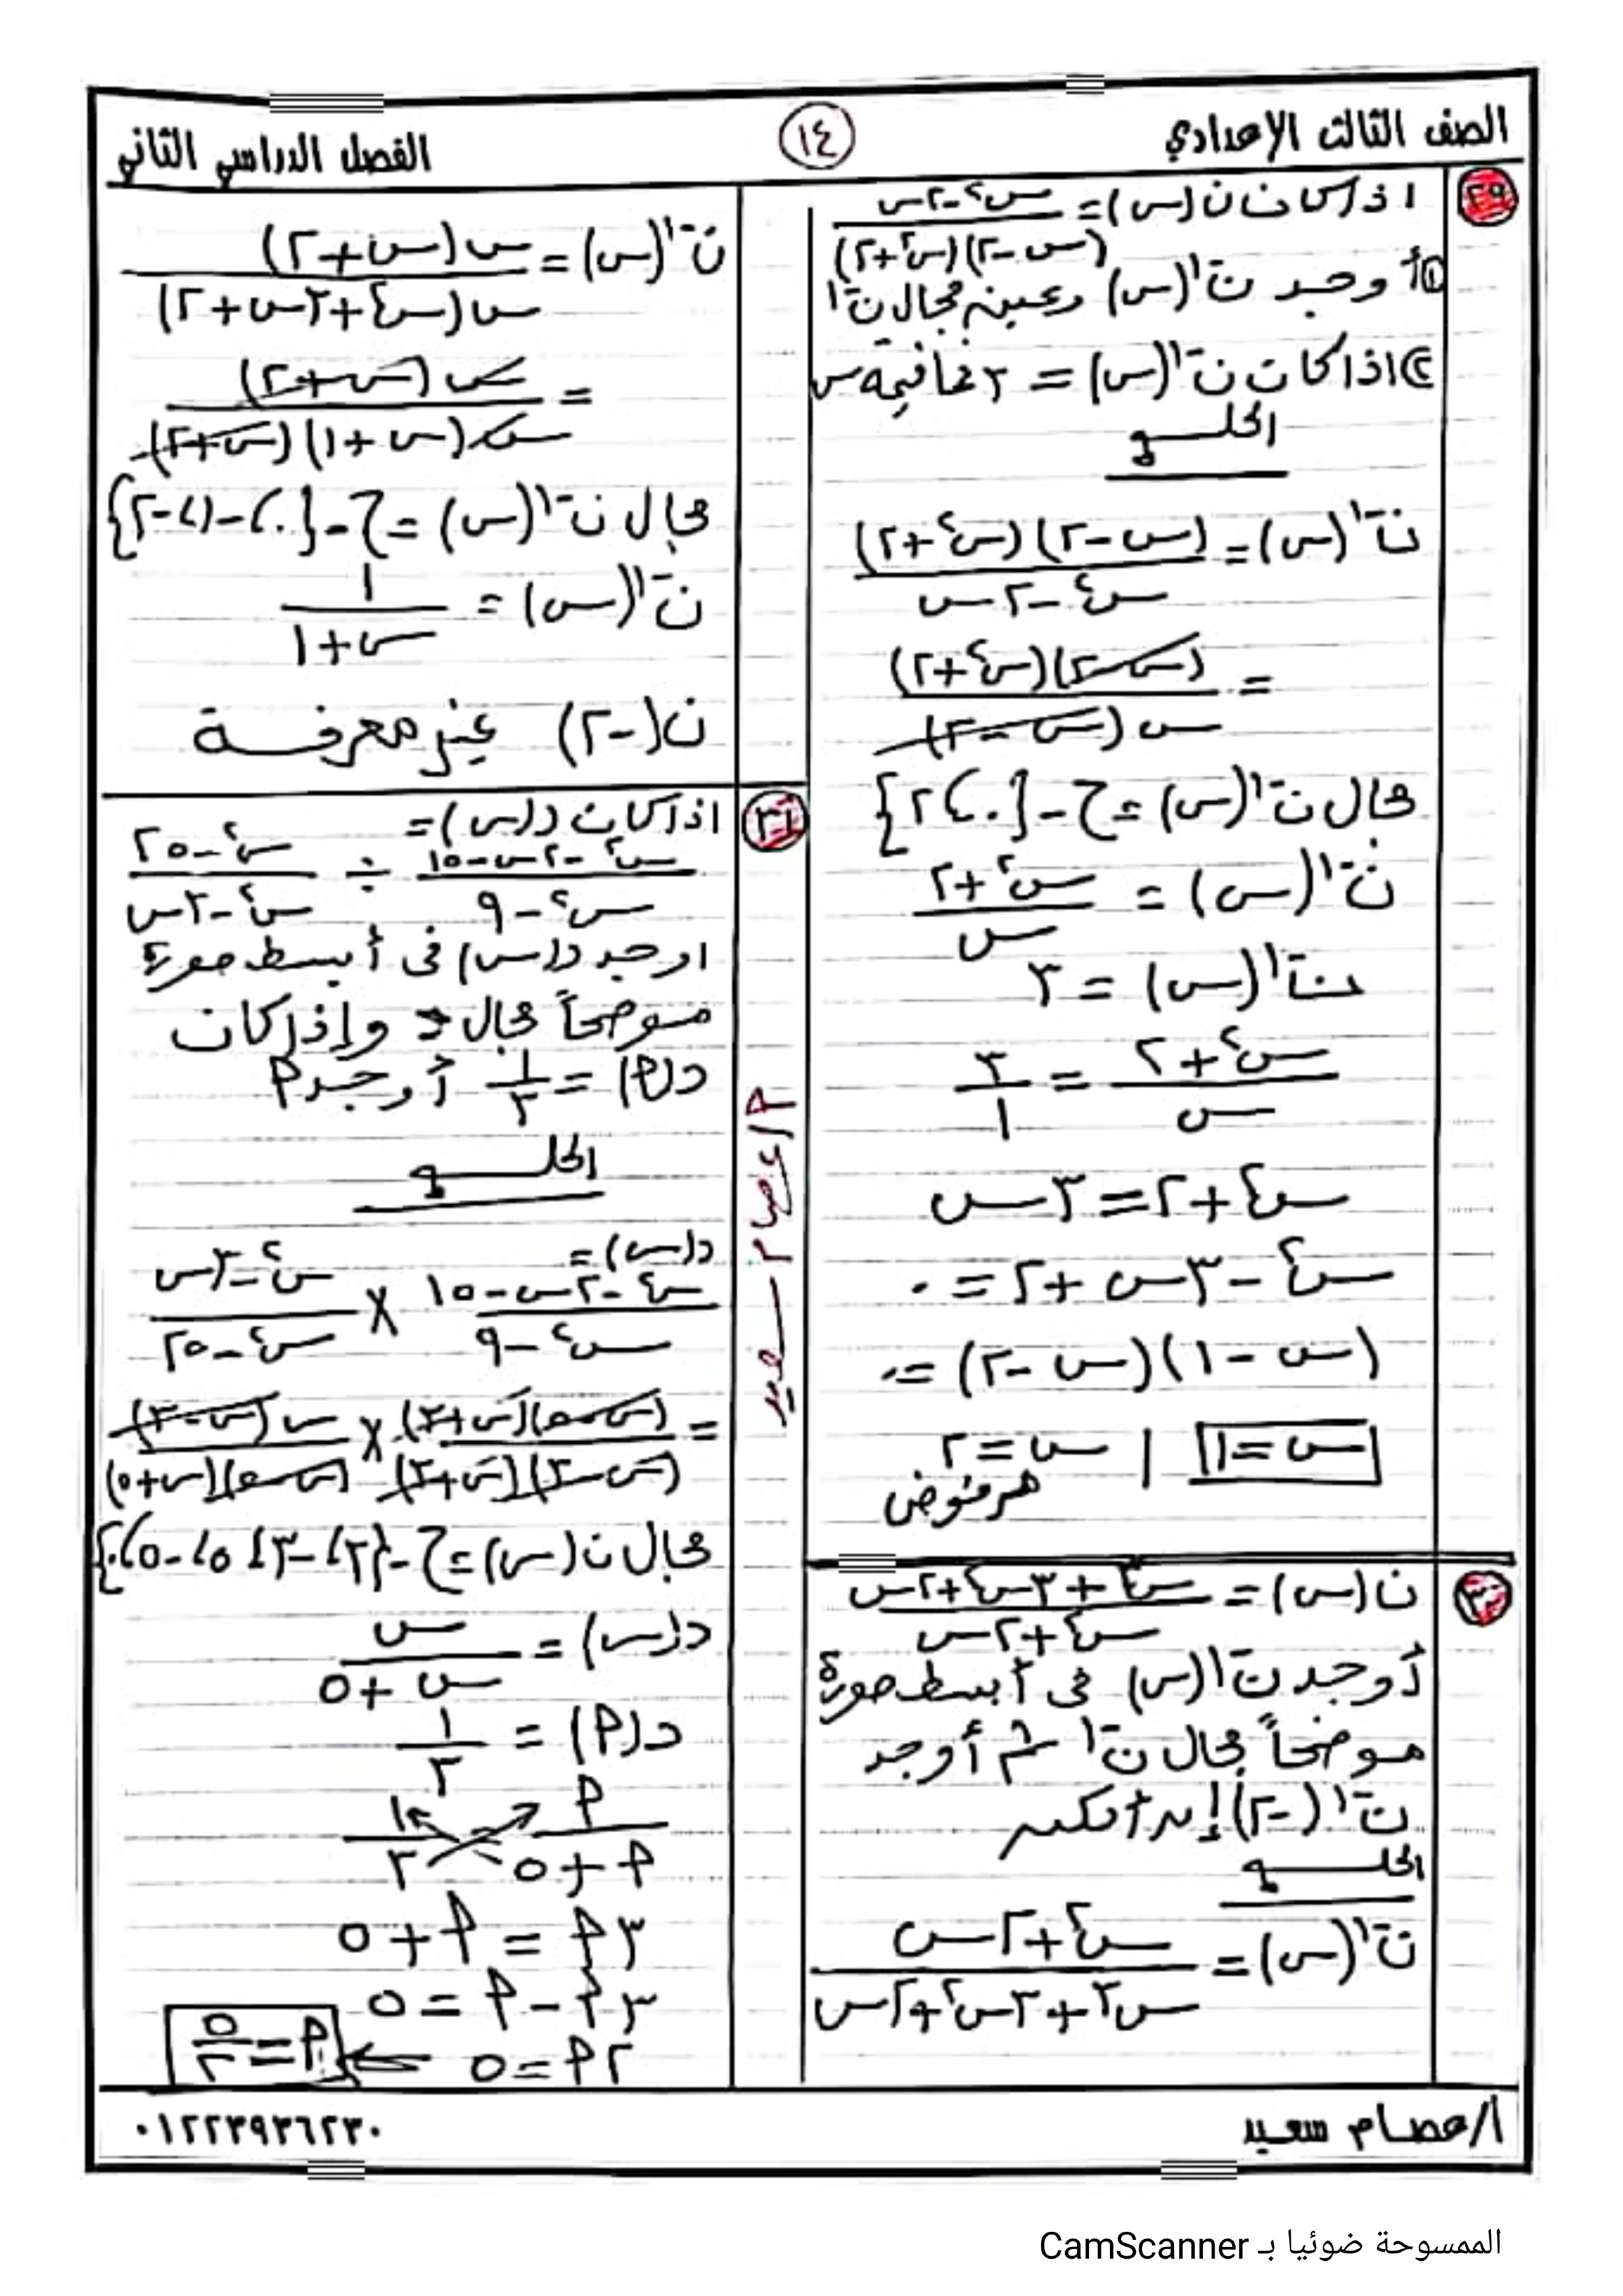 الصف الثالث الإعدادي
١٤
الفصل الدراسي الثاني
٢٩
اذا كان ن(س) = (س٢ - ٢س) / ((س - ٢)(س٢ + ٢))
① أوجد ن-١(س) وعين مجال ن-١
② اذا كان ن-١(س) = ٣ فما قيمة س
الحلـــــو
ن-١(س) = ((س - ٢)(س٢ + ٢)) / (س٢ - ٢س)
= ((س - ٢)(س٢ + ٢)) / (س(س - ٢))
مجال ن-١(س) = ح - {٠، ٢}
ن-١(س) = (س٢ + ٢) / س
ن-١(س) = ٣
(س٢ + ٢) / س = ٣ / ١
س٢ + ٢ = ٣س
س٢ - ٣س + ٢ = ٠
(س - ١)(س - ٢) = ٠
س = ١ | س = ٢
مرفوض
٣٠
ن(س) = (س٣ + ٣س٢ + ٢س) / (س٢ + ٢س)
أوجد ن-١(س) فى أبسط صورة
موضحاً مجال ن-١ ثم أوجد
ن-١(-٢) إن أمكن
الحلـــــو
ن-١(س) = (س٢ + ٢س) / (س٣ + ٣س٢ + ٢س)
ن-١(س) = (س(س + ٢)) / (س(س٢ + ٣س + ٢))
= (س(س + ٢)) / (س(س + ١)(س + ٢))
مجال ن-١(س) = ح - {٠، -١، -٢}
ن-١(س) = ١ / (س + ١)
ن(-٢) غير معرفــة
٣١
اذا كان د(س) =
(س٢ - ٢س - ١٥) / (س٢ - ٩) ÷ (س٢ - ٢٥) / (س٢ - ٣س)
اوجد د(س) فى أبسط صورة
موضحاً مجال د وإذا كان
د(م) = ١/٣ أوجد م
الحلـــــو
د(س) =
(س٢ - ٢س - ١٥) / (س٢ - ٩) × (س٢ - ٣س) / (س٢ - ٢٥)
= ((س - ٥)(س + ٣)) / ((س - ٣)(س + ٣)) × (س(س - ٣)) / ((س - ٥)(س + ٥))
مجال ن(س) = ح - {٣، -٣، ٥، -٥، ٠}
د(س) = س / (س + ٥)
د(م) = ١/٣
م / (م + ٥) = ١/٣
٣م = م + ٥
٣م - م = ٥
٢م = ٥ ← م = ٥/٢
أ/عصام سعيد
أ/عصام سعيد
٠١٢٢٣٩٣٦٢٣٠
الممسوحة ضوئيا بـ CamScanner